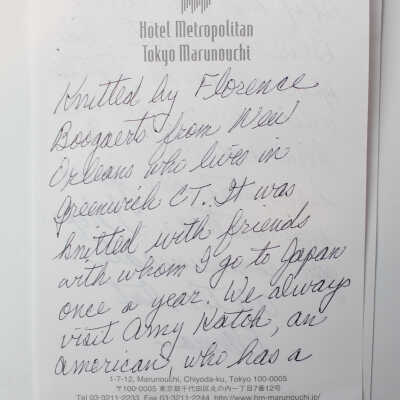 Hotel Metropolitan
Tokyo Marunouchi
Knitted by Florence
Boogaerts from New
Orleans who lives in
Greenwich CT. It was
knitted with friends
with whom I go to Japan
once a year. We always
visit Amy Katoh, an
American, who has a
1-7-12, Marunouchi, Chiyoda-ku, Tokyo 100-0005
〒100-0005 東京都千代田区丸の内1丁目7番12号
Tel 03-3211-2233 Fax 03-3211-2244 http://www.hm-marunouchi.jp/